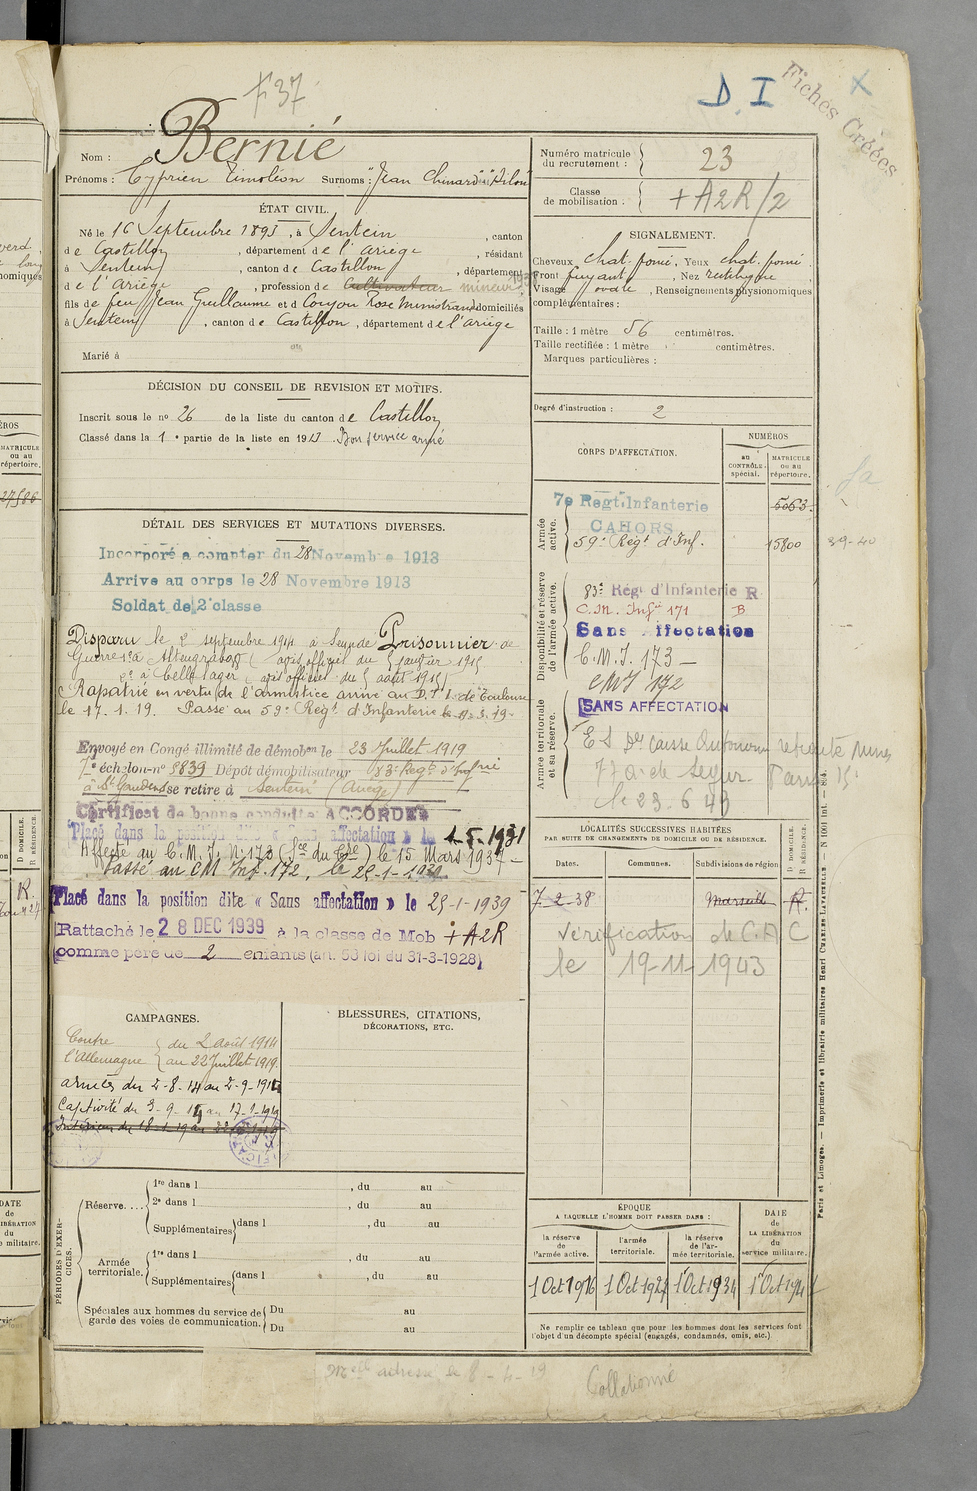 F 37
D. I
Fiches Créées
X
Bernié
Nom :
Prénoms : Cyprien Timoléon Surnoms : "Jean
ÉTAT CIVIL.
Né le 16 Septembre 1893, à Sentein, canton
de Castillon, département de l'Ariège, résidant
à Sentein, canton de Castillon, département
de l'Ariège, profession de Cultivateur mineur
fils de feu Jean Guillaume et de Coujou Rose domiciliés
à Sentein, canton de Castillon, département de l'Ariège
Marié à
DÉCISION DU CONSEIL DE REVISION ET MOTIFS.
Inscrit sous le no 26 de la liste du canton de Castillon
Classé dans la 1e partie de la liste en 1913 Bon service armé
DÉTAIL DES SERVICES ET MUTATIONS DIVERSES.
Incorporé à compter du 28 Novembre 1913
Arrivé au corps le 28 Novembre 1913
Soldat de 2e classe
Disparu le 2 septembre 1914 à Prisonnier de
Guerre 1o à Altengrabow (avis officiel du 5 janvier 1915
2o à Celle lager avis officiel du 5 août 1915)
Rapatrié en vertu de l'armistice arrivé au D.T.I. de Toulouse
le 17.1.19. Passé au 59e Régt d'Infanterie le 3.19.
Envoyé en Congé illimité de démobon le 23 Juillet 1919
7e échelon-no 8839 Dépôt démobilisateur 83e Regt d'Infrie
à St Gaudens se retire à Sentein (Ariège)
Certificat de bonne conduite ACCORDÉ
Placé dans la position dite « Sans affectation » le 1.5.1931
Affecté au C.M.I. No 173 le 15 Mars 1937 -
Passé au CM Inf. 172, le 25-1-1939
Placé dans la position dite « Sans affectation » le 25-1-1939
Rattaché le 28 DEC 1939 à la classe de Mob + A2R
(comme père de 2 enfants (art. 58 loi du 31-3-1928)
CAMPAGNES.
Contre l'Allemagne { du 2 août 1914
au 22 Juillet 1919.
armées du 2-8-14 au 2-9-1914
Captivité du 3-9-14 au 17-1-1919
Intérieur du 18-1-19 au
BLESSURES, CITATIONS,
DÉCORATIONS, ETC.
PÉRIODES D'EXERCICES.
Réserve.... 1re dans l , du au
2e dans l , du au
Supplémentaires dans l , du au
Armée territoriale. 1re dans l , du au
Supplémentaires dans l , du au
Spéciales aux hommes du service de garde des voies de communication. Du au
Du au
Numéro matricule du recrutement : 23
Classe de mobilisation : + A2R/2
SIGNALEMENT.
Cheveux chat. foncé, Yeux chat. foncé
Front fuyant, Nez rectiligne
Visage ovale, Renseignements physionomiques
complémentaires :
Taille : 1 mètre 56 centimètres.
Taille rectifiée : 1 mètre centimètres.
Marques particulières :
Degré d'instruction : 2
CORPS D'AFFECTATION.
NUMÉROS
au CONTRÔLE spécial.
MATRICULE ou au répertoire.
Armée active.
7e Régt Infanterie 5063
CAHORS
59e Régt d'Inf. 15800
39-40
Disponibilité et réserve de l'armée active.
83e Régt d'Infanterie R
C.M. Infie 171 B
Sans Affectation
C.M.I. 173 -
CMI 172
Armée territoriale et sa réserve.
SANS AFFECTATION
le 23.6.49
LOCALITÉS SUCCESSIVES HABITÉES
PAR SUITE DE CHANGEMENTS DE DOMICILE OU DE RÉSIDENCE.
Dates. Communes. Subdivisions de région. D DOMICILE. R RÉSIDENCE.
7-2-38 Marseille R.
Vérification de C.A.C
le 19-11-1943
ÉPOQUE
A LAQUELLE L'HOMME DOIT PASSER DANS :
la réserve de l'armée active.
l'armée territoriale.
la réserve de l'armée territoriale.
DATE de LA LIBÉRATION du service militaire.
1 Oct 1916 1 Oct 1927 1 Oct 1934 1er Oct 1941
Ne remplir ce tableau que pour les hommes dont les services font
l'objet d'un décompte spécial (engagés, condamnés, omis, etc.)
Paris et Limoges. — Imprimerie et librairie militaires Henri CHARLES-LAVAUZELLE
adresse le 8-4-19
Collationné